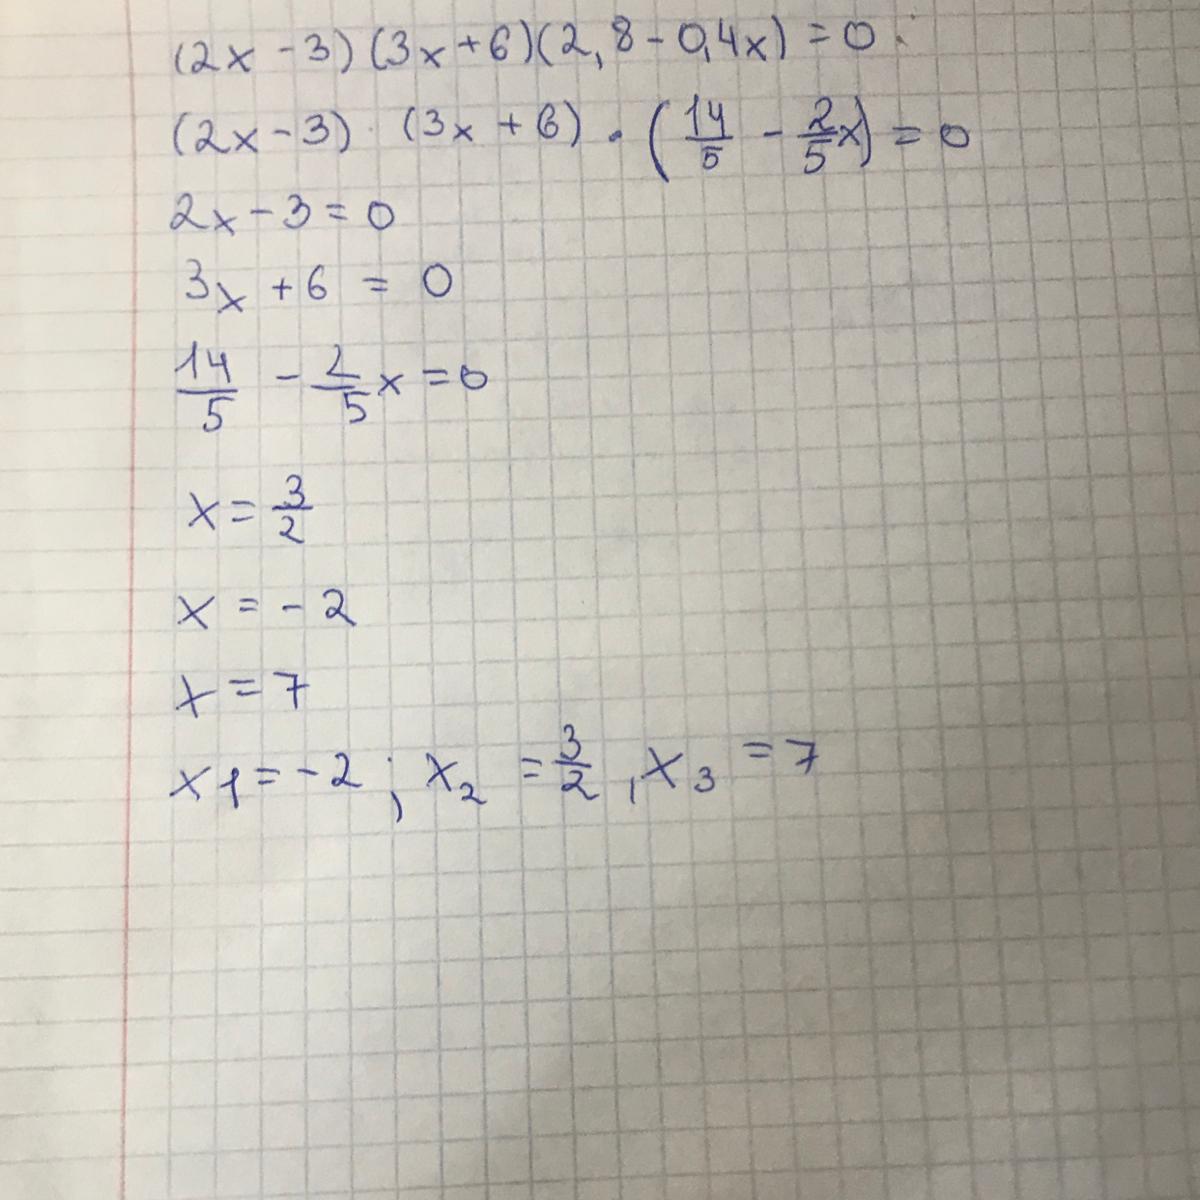 (2x - 3)(3x + 6)(2,8 - 0,4x) = 0.
(2x - 3) · (3x + 6) · (14/5 - 2/5 x) = 0
2x - 3 = 0
3x + 6 = 0
14/5 - 2/5 x = 0
x = 3/2
x = - 2
x = 7
x1 = -2 ; x₂ = 3/2 , x₃ = 7